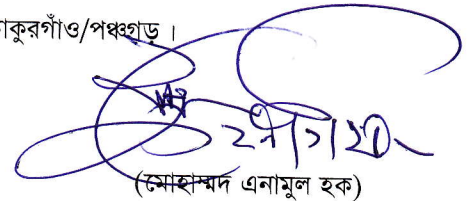 াকুরগাঁও/পঞ্চগড়।
(মোহাম্মদ এনামুল হক)